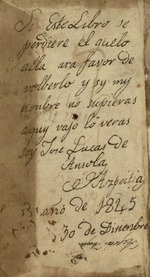 Si este Libro se
perdiere el quelo
alla ara favor de
volberlo y sy my
nonbre no supieras
aquy vajo lo veras
soy José Lucas de
Ansola
Azpeitia
año de 1845
30 de Dicienbre